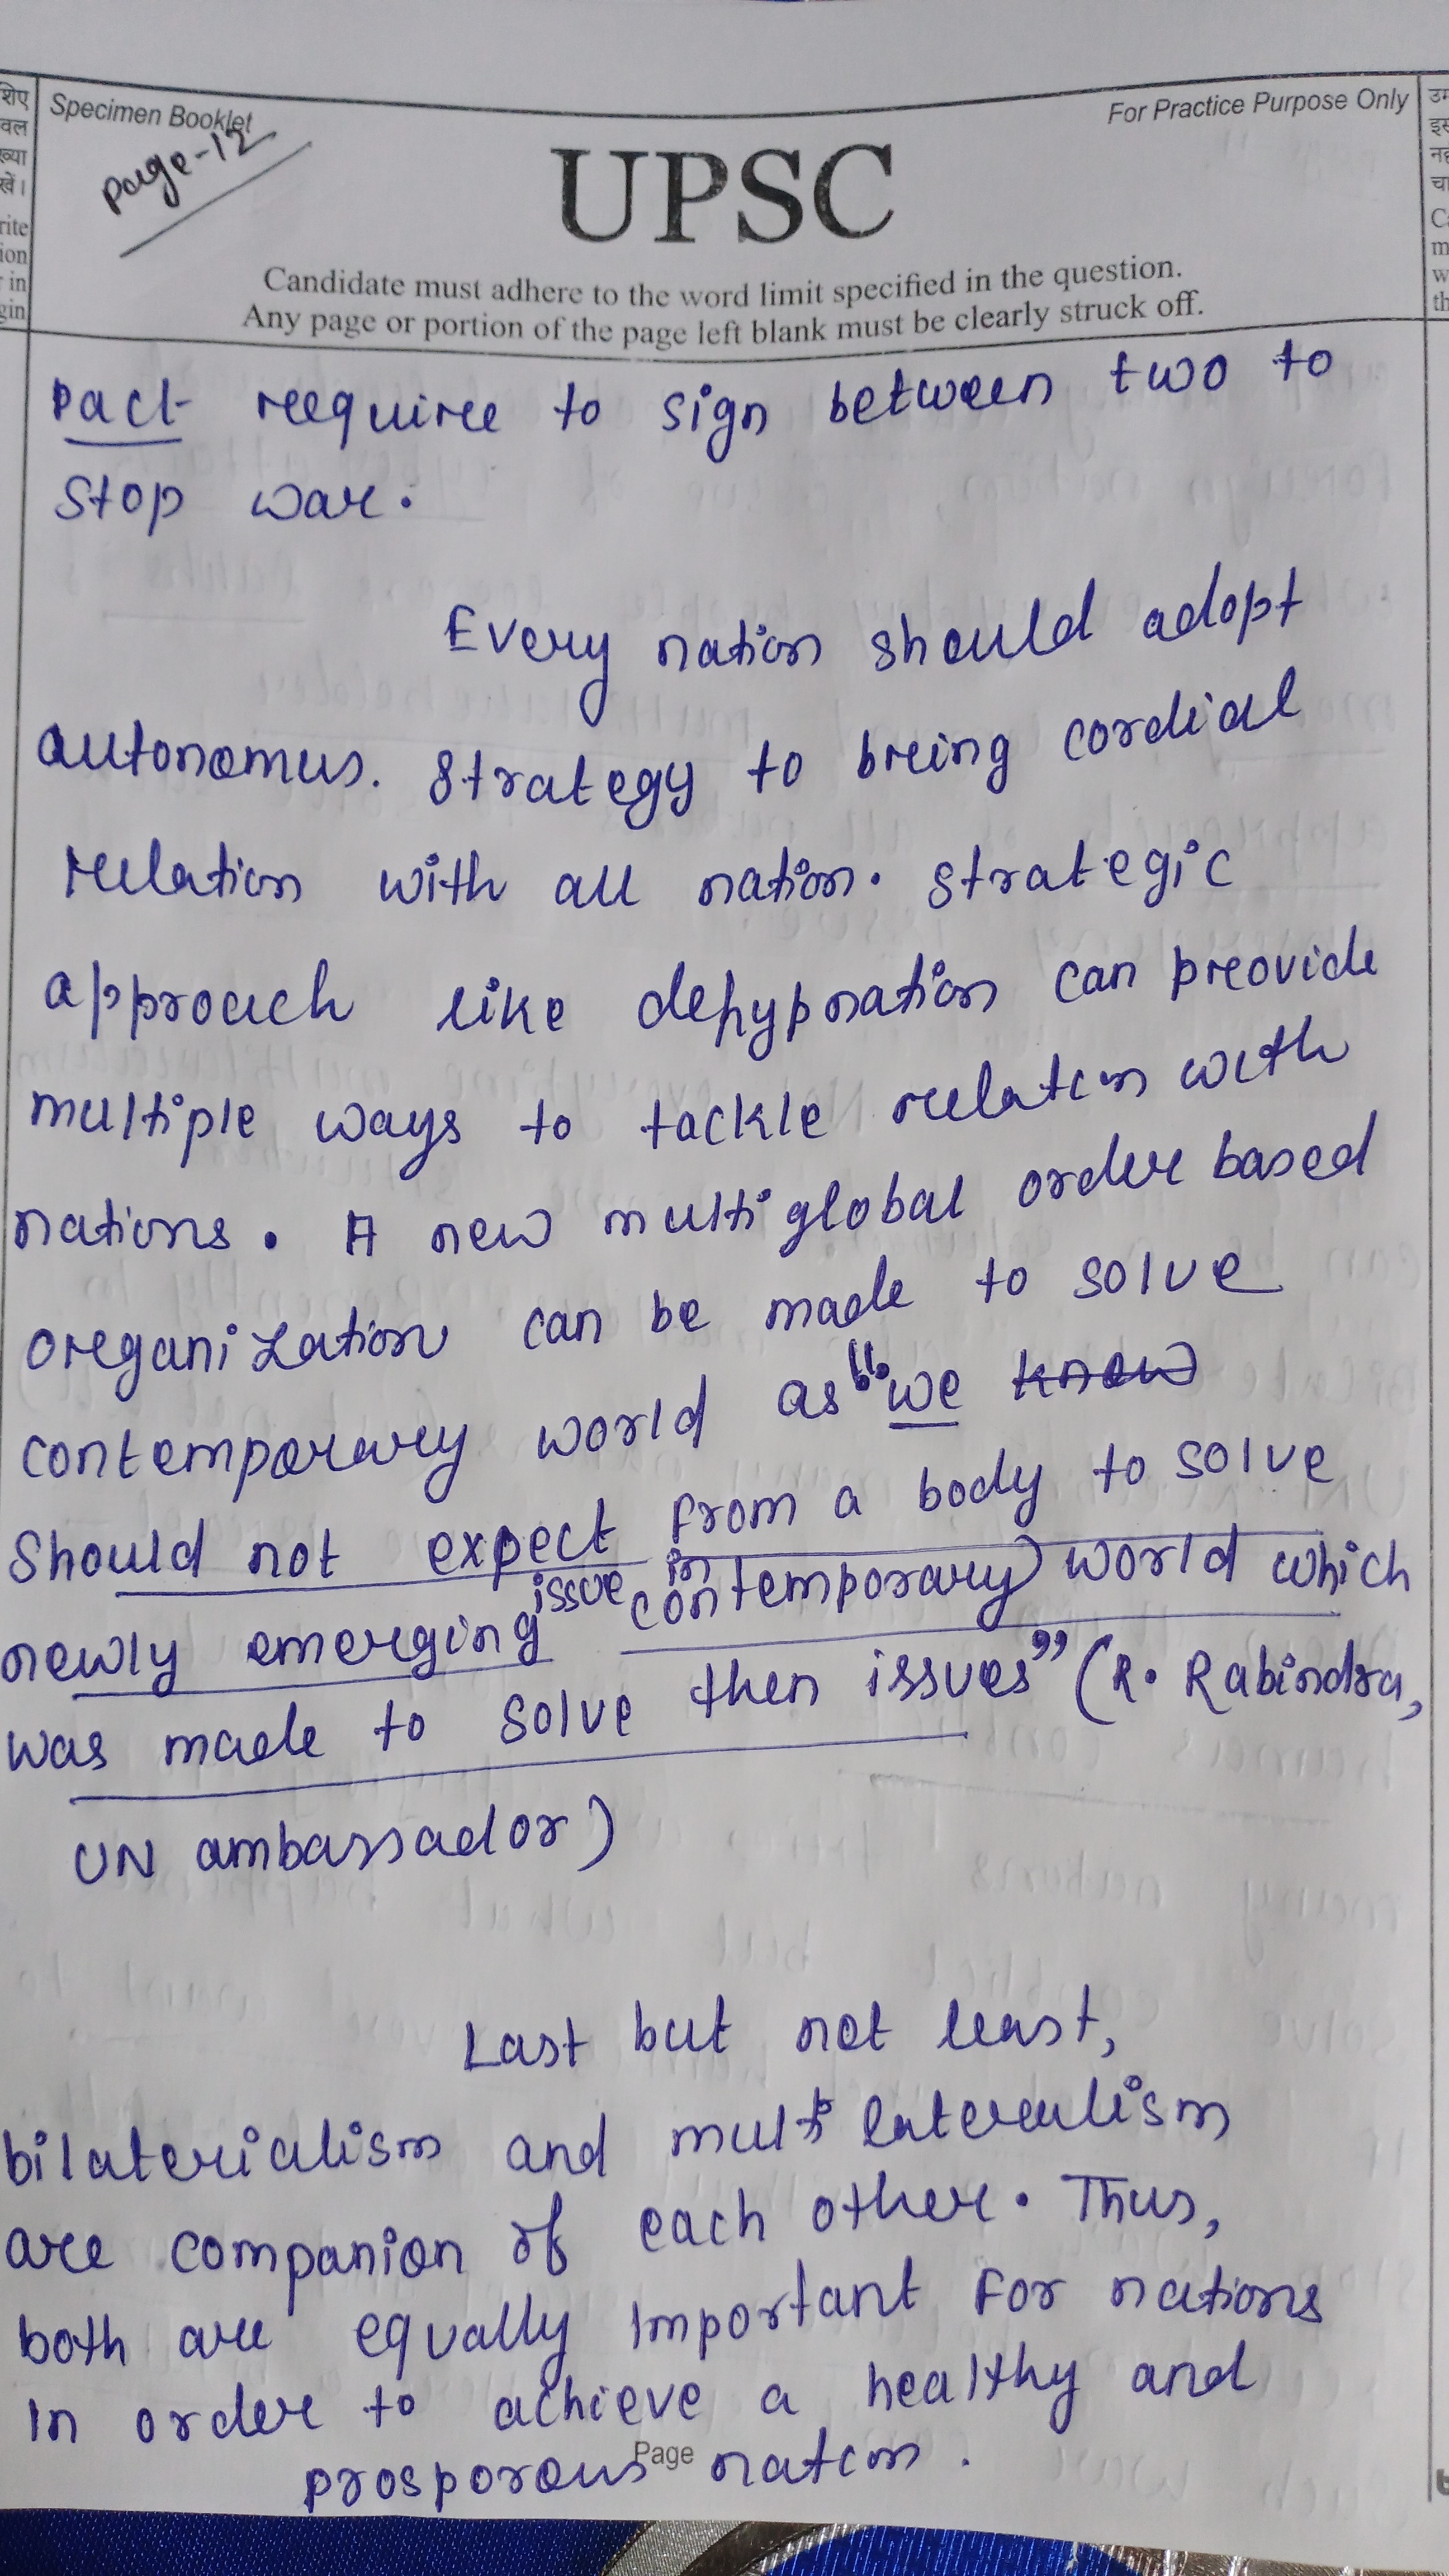 शिए
वल
ख्या
खें।
rite
ion
r in
gin
Specimen Booklet
For Practice Purpose Only
Page-12
UPSC
Candidate must adhere to the word limit specified in the question.
Any page or portion of the page left blank must be clearly struck off.
pact require to sign between two to
stop war.
Every nation should adopt
autonomus. strategy to bring cordial
relation with all nation. strategic
approach like dehypnation can provide
multiple ways to tackle relation with
nations. A new multi global order based
organization can be made to solve
contemporary world as "we know
should not expect from a body to solve
newly emerging issue in contemporary world which
was made to solve then issues" (R. Rabindra,
UN ambassador)
Last but not least,
bilaterialism and multilateralism
are companion of each other. Thus,
both are equally important for nations
In order to achieve a healthy and
prosporous nation.
Page